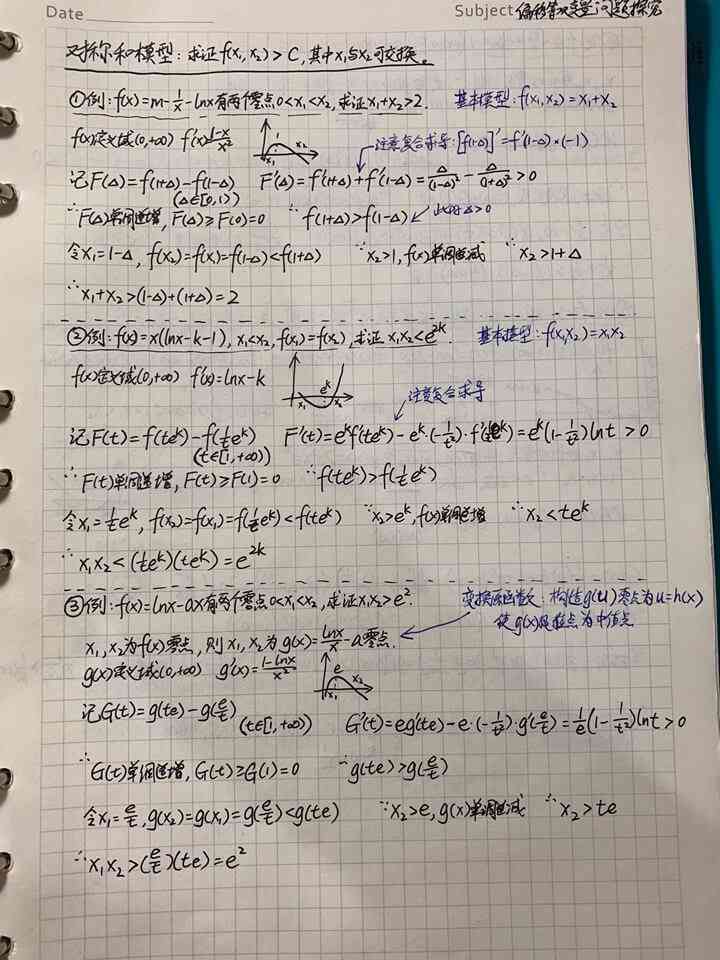 Date
Subject: 偏移等双变量问题探究
对称和模型: 求证f(x₁, x₂) > C, 其中x₁与x₂可交换。
①例: f(x)=m-1/x-lnx有两个零点0<x₁<x₂, 求证x₁+x₂>2. 基本模型: f(x₁, x₂)=x₁+x₂
f(x)定义域(0,+∞) f'(x)=(1-x)/x² 1 x₁ x₂ 注意复合求导: [f(1-Δ)]'=f'(1-Δ)×(-1)
记F(Δ)=f(1+Δ)-f(1-Δ) (Δ∈[0,1)) F'(Δ)=f'(1+Δ)+f'(1-Δ)=Δ/(1-Δ)²-Δ/(1+Δ)²>0
∴F(Δ)单调递增, F(Δ)≥F(0)=0 ∴f(1+Δ)>f(1-Δ) 此时Δ>0
令x₁=1-Δ, f(x₂)=f(x₁)=f(1-Δ)<f(1+Δ) ∵x₂>1, f(x)单调递减 ∴x₂>1+Δ
∴x₁+x₂>(1-Δ)+(1+Δ)=2
②例: f(x)=x(lnx-k-1), x₁<x₂, f(x₁)=f(x₂), 求证x₁x₂<e²ᵏ. 基本模型: f(x₁,x₂)=x₁x₂
f(x)定义域(0,+∞) f'(x)=lnx-k eᵏ x₁ x₂
注意复合求导
记F(t)=f(teᵏ)-f(1/t eᵏ) (t∈[1,+∞)) F'(t)=eᵏf'(teᵏ)-eᵏ·(-1/t²)·f'(1/t eᵏ)=eᵏ(1-1/t²)lnt>0
∴F(t)单调递增, F(t)≥F(1)=0 ∴f(teᵏ)>f(1/t eᵏ)
令x₁=1/t eᵏ, f(x₂)=f(x₁)=f(1/t eᵏ)<f(teᵏ) ∵x₂>eᵏ, f(x)单调递增 ∴x₂<teᵏ
∴x₁x₂<(1/t eᵏ)(teᵏ)=e²ᵏ
③例: f(x)=lnx-ax有两个零点0<x₁<x₂, 求证x₁x₂>e². 变换原函数: 构造g(u)零点为u=h(x)
使g(x)极值点为中值点
x₁, x₂为f(x)零点, 则x₁, x₂为g(x)=lnx/x-a零点.
g(x)定义域(0,+∞) g'(x)=(1-lnx)/x² e x₁ x₂
记G(t)=g(te)-g(e/t) (t∈[1,+∞)) G'(t)=eg'(te)-e·(-1/t²)·g'(e/t)=1/e(1-1/t²)lnt>0
∴G(t)单调递增, G(t)≥G(1)=0 ∴g(te)>g(e/t)
令x₁=e/t, g(x₂)=g(x₁)=g(e/t)<g(te) ∵x₂>e, g(x)单调递减 ∴x₂>te
∴x₁x₂>(e/t)(te)=e²